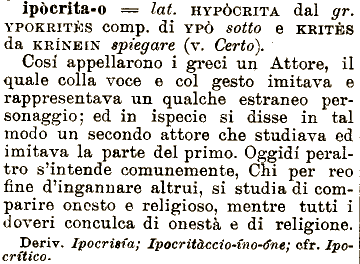 ipòcrita-o = lat. HYPÒCRITA dal gr.
YPOKRITÈS comp. di YPÒ sotto e KRITÈS
da KRÍNEIN spiegare (v. Certo).
Cosí appellarono i greci un Attore, il
quale colla voce e col gesto imitava e
rappresentava un qualche estraneo per-
sonaggio; ed in ispecie si disse in tal
modo un secondo attore che studiava ed
imitava la parte del primo. Oggidí peral-
tro s'intende comunemente, Chi per reo
fine d'ingannare altrui, si studia di com-
parire onesto e religioso, mentre tutti i
doveri conculca di onestà e di religione.
Deriv. Ipocrisía; Ipocritàccio-íno-óne; cfr. Ipo-
crítico.